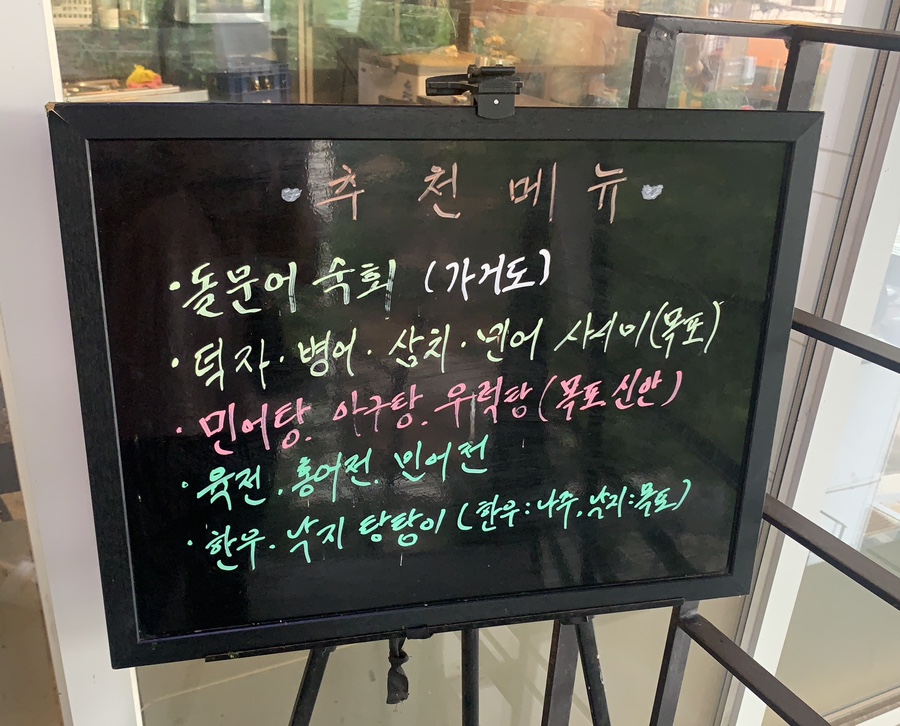 추천메뉴
· 돌문어 숙회 (가거도)
· 덕자 · 병어 · 삼치 · 민어 사시미 (목포)
· 민어탕. 아구탕. 우럭탕 (목포. 신안)
· 육전. 홍어전. 민어전
· 한우. 낙지 탕탕이 (한우:나주. 낙지:목포)